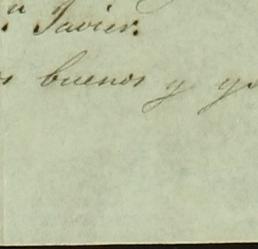 n Javier.
s buenos y yo